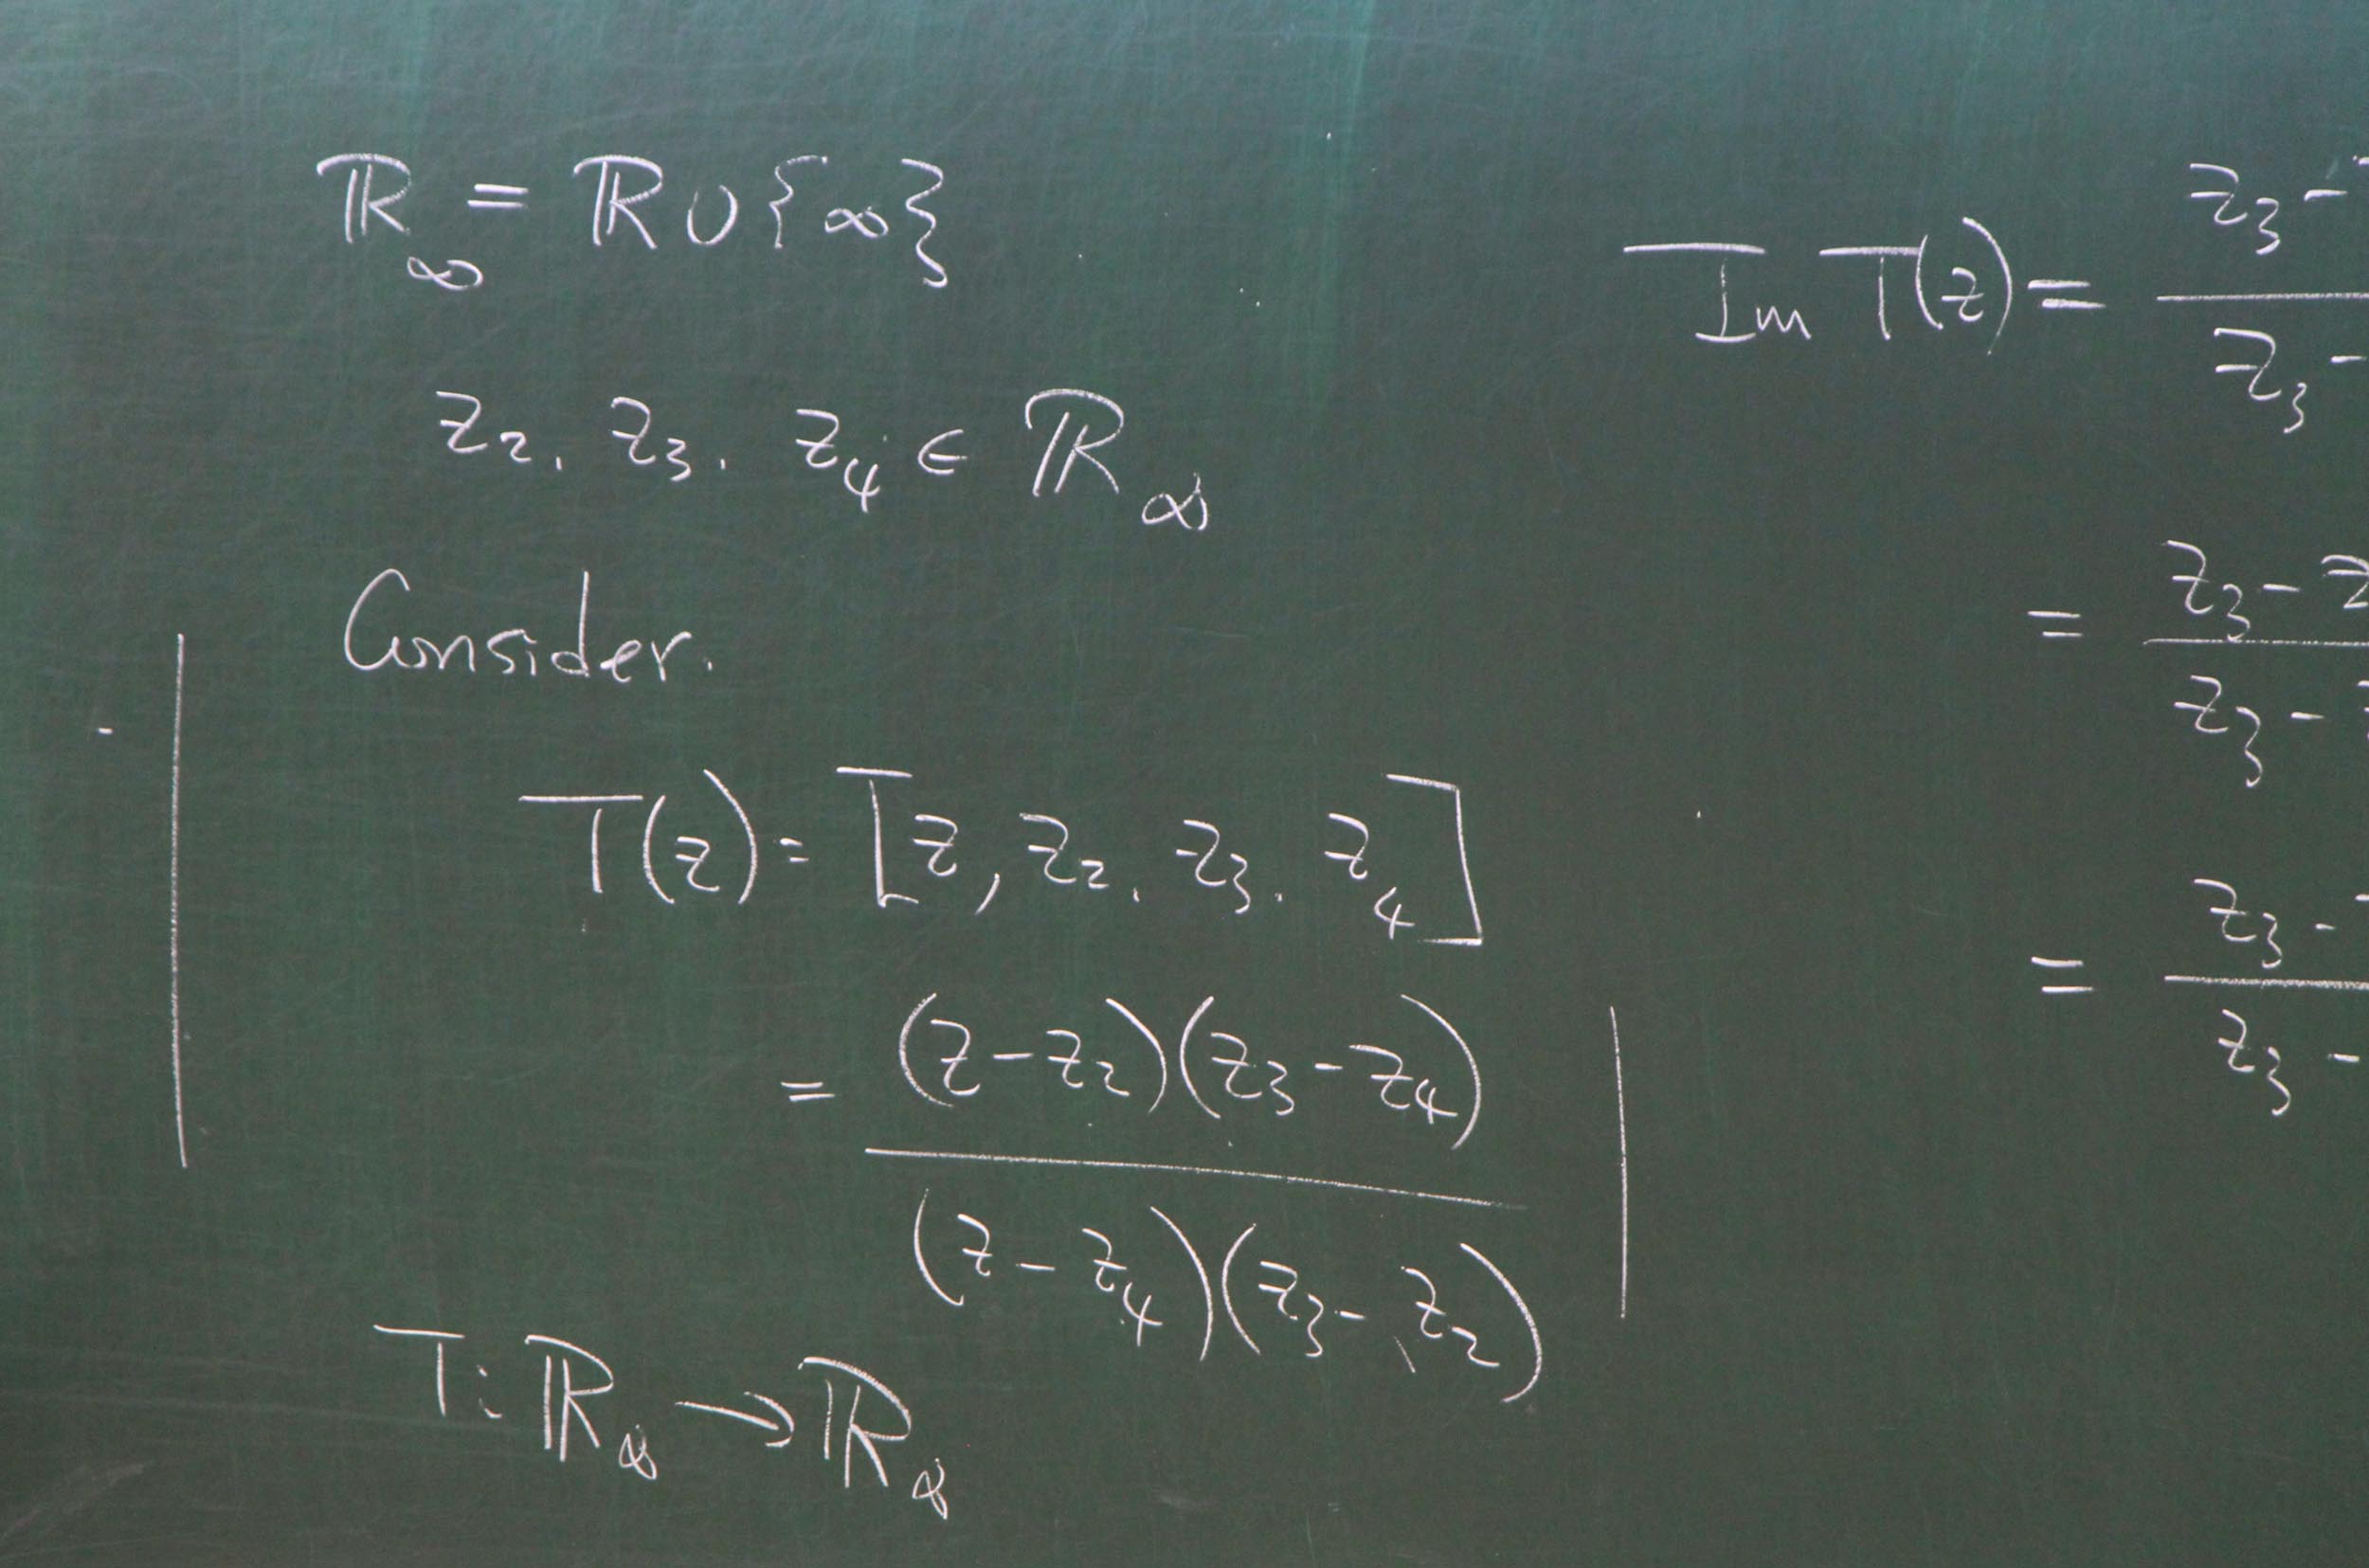 ℝ_∞ = ℝ ∪ {∞}
z₂, z₃, z₄ ∈ ℝ_∞
Consider.
T(z) = [z, z₂, z₃, z₄]
= (z-z₂)(z₃-z₄) / (z-z₄)(z₃-z₂)
T: ℝ_∞ → ℝ_∞
Im T(z) = z₃- / z₃-
= z₃-z / z₃-
= z₃- / z₃-